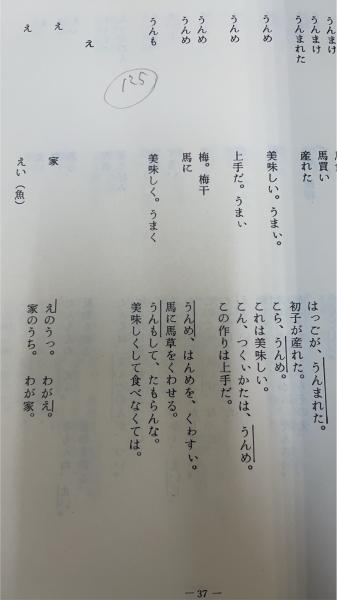 うんまけ
うんまけ　馬買い
うんまれた　産れた　はっごが、うんまれた。
初子が産れた。
うんめ　美味しい。うまい。　こら、うんめ。
これは美味しい。
うんめ　上手だ。うまい　こん、つくぃかたは、うんめ。
この作りは上手だ。
うんめ　梅。梅干
うんめ　馬に　うんめ、はんめを、くわすぃ。
馬に馬草をくわせる。
うんも　美味しく。うまく　うんもして、たもらんな。
美味しくして食べなくては。
125
え
え　家　えのうっ。　わがえ。
家のうち。　わが家。
え　えい（魚）
— 37 —